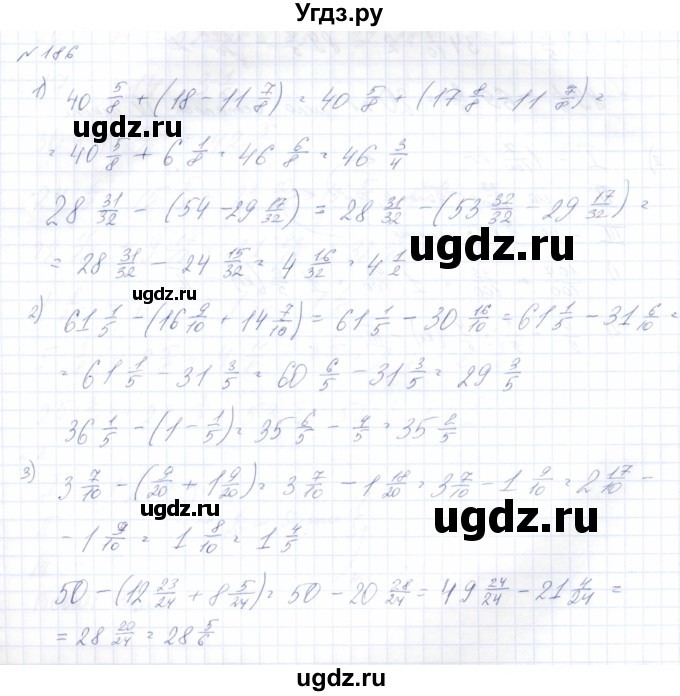 Угдз.ру
№ 186
1) 40 5/8 + (18 - 11 7/8) = 40 5/8 + (17 8/8 - 11 7/8) =
ugdz.ru ugdz.ru
= 40 5/8 + 6 1/8 = 46 6/8 = 46 3/4
28 31/32 - (54 - 29 17/32) = 28 31/32 - (53 32/32 - 29 17/32) =
ugdz.ru
= 28 31/32 - 24 15/32 = 4 16/32 = 4 1/2
ugdz.ru
2) 61 1/5 - (16 9/10 + 14 7/10) = 61 1/5 - 30 16/10 = 61 1/5 - 31 6/10 =
= 61 1/5 - 31 3/5 = 60 6/5 - 31 3/5 = 29 3/5
36 1/5 - (1 - 1/5) = 35 6/5 - 4/5 = 35 2/5
3) 3 7/10 - (9/20 + 1 9/20) = 3 7/10 - 1 18/20 = 3 7/10 - 1 9/10 = 2 17/10 -
ugdz.ru ugdz.ru
- 1 9/10 = 1 8/10 = 1 4/5
50 - (12 23/24 + 8 5/24) = 50 - 20 28/24 = 49 24/24 - 21 4/24 =
= 28 20/24 = 28 5/6
ugdz.ru
ugdz.ru